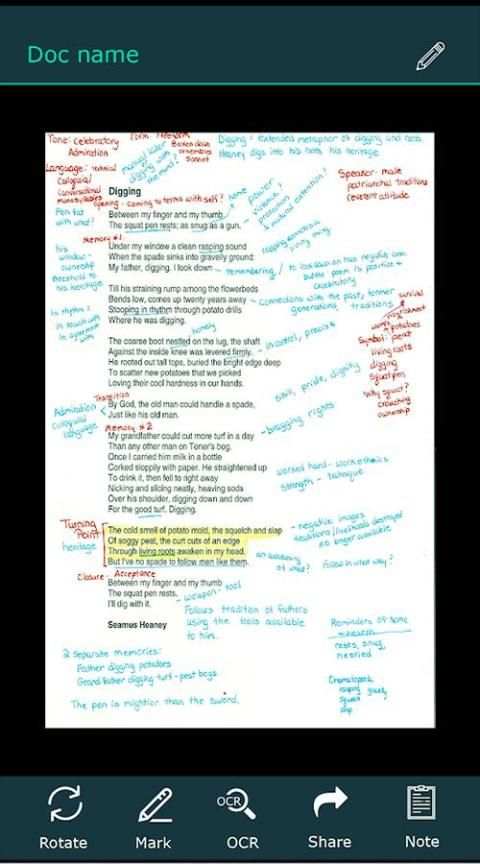 Doc name
Tone: Celebratory
Admiration
Form: Freeform
Broken down
Sonnet
Digging: extended metaphor of digging and roots
Heaney digs into his roots, his heritage
Language: technical
Colloquial
Conversational
Speaker: male
patriarchal traditions
reverent attitude
Digging
Opening - Coming to terms with self?
Between my finger and my thumb
The squat pen rests; as snug as a gun.
Pen for
with what?
Memory #1
Under my window a clean rasping sound
When the spade sinks into gravelly ground
My father, digging. I look down
his
window -
ownership
threshold to
his heritage
remembering
celebratory
Till his straining rump among the flowerbeds
Bends low, comes up twenty years away
Stooping in rhythm through potato drills
Where he was digging.
connections with the past, former
generations, traditions
In rhythm?
in touch with
in agreement
with
lovely
The coarse boot nestled on the lug, the shaft
Against the inside knee was levered firmly.
He rooted out tall tops, buried the bright edge deep
To scatter new potatoes that we picked
Loving their cool hardness in our hands.
in control, precise
survival
potatoes
Symbol: peat
living roots
digging
squat pen
Why squat?
crouching
ownership
Transition
By God, the old man could handle a spade,
Just like his old man.
Admiration
colloquial
language
pride, dignity
bragging rights
Memory #2
My grandfather could cut more turf in a day
Than any other man on Toner's bog.
Once I carried him milk in a bottle
Corked sloppily with paper. He straightened up
To drink it, then fell to right away
Nicking and slicing neatly, heaving sods
Over his shoulder, digging down and down
For the good turf. Digging.
worked hard - work ethics
strength - technique
Turning
Point
heritage
The cold smell of potato mold, the squelch and slap
Of soggy peat, the curt cuts of an edge
Through living roots awaken in my head.
But I've no spade to follow men like them.
negative images
traditions/livelihoods destroyed
no longer available
an awakening
of what?
Follow in what way?
Closure - Acceptance
Between my finger and my thumb
The squat pen rests.
I'll dig with it.
weapon - tool
Follows tradition of fathers
using the tools available
to him.
Seamus Heaney
Reminders of home
rests, snug,
nestled
2 separate memories:
Father digging potatoes
Grandfather digging turf - peat bogs
Onomatopoeia
rasping
squelch
slap
The pen is mightier than the sword.
Rotate
Mark
OCR
OCR
Share
Note